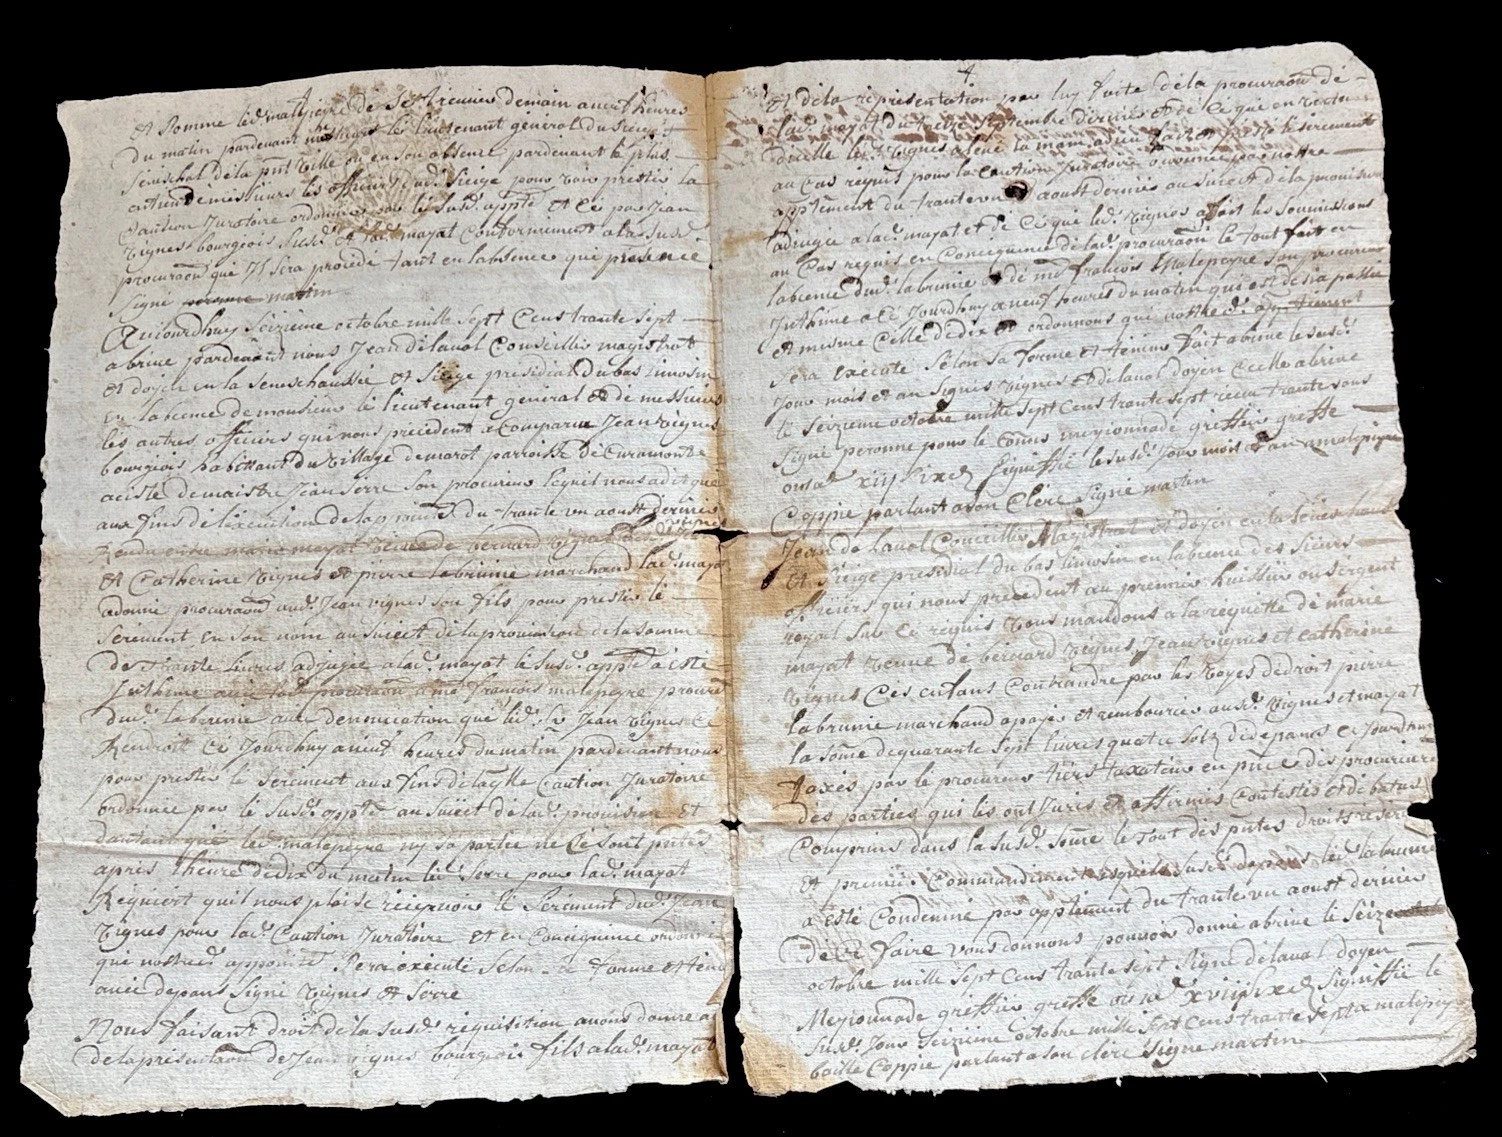 et somme led. malepeyre de se trouver demain a neuf heures
du matin pardevant le lieutenant général du siege
seneschal de la pnt ville ou en son absence pardevant le plus
antien de messieurs les officiers dud. siege pour voir prester la
caution juratoire ordonnée par le susd. appte et ce par jean
vignes bourgois susd. et lad. mayat conformement a la susd.
procuraon qui il sera procédé tant en labsence que presence
signé martin
Aujourdhuy seizieme octobre mille sept cens trante sept
a brive pardevant nous jean delaval conseiller magistrat
et doyen en la seneschaussée et siege presidial du bas limosin
en labscence de monsieur le lieutenant general et de messieurs
les autres officiers qui nous precedent a comparu jean vignes
bourgeois habittant du village de marot parroisse de curamonte
acisté de maistre jean serre son procureur lequel nous a dit que
aux fins de l'execution de la du trante un aoust dernier
rendu entre marie mayat veuve de bernard vignes jean vignes
et catherine vignes et pierre labrunie marchand lad. mayat
a donné procuraon aud. jean vignes son fils pour prester le
serement en son nom au suiect de la provision de la somme
de trante livres adjugée a lad. mayat le susd. appte a esté
inthimé avec lad. procuraon a me francois malepeyre procur
dud. labrunie avec denonciation que led. sr jean vignes se
rendroit ce jourdhuy a neuf heures du matin pardevant nous
pour prester le serement aux fins de laquelle caution juratoire
ordonnée par le susd. appte au suiect de lad. provision et
dautant que led. malepeyre ny sa partie ne se sont pntés
apres l'heure de dix du matin led. serre pour lad. mayat
requiert quil nous plaise recepvoir le serement dud. jean
vignes pour lad. caution juratoire et en concequence ordonné
que nostred. appointé sera executé selon sa forme et teneur
avec depans signé vignes et serre
Nous faisant droit de la susd. requisition avons donné a
de la présentaon de jean vignes bourgeois fils a lad. mayat
4
et de la representation par luy faite de la procuraon de
lad. mayat du treze septembre dernier et de ce que en
dicelle led. vignes a levé la main a dieu et presté le serement
au cas requis pour la caution juratoire ordonnée par nostre
apptement du trante un aoust dernier au suiect de la provision
adiugée a lad. mayat et de ce que led. vignes a fait les soumissions
au cas requis en concequence de lad. procuraon le tout fait en
labscence dud. labrunie et de me françois malepeyre son procureur
inthimé a ce jourdhuy a neuf heures du matin qui est desia passée
et mesme celle de dix et ordonnons que nostred. apptement
sera executé selon sa forme et teneur fait a brive le susd.
jour mois et an signés vignes et delaval doyen a brive
le seizieme octobre mille sept cens trante sept receu trante sous
signé peronne pour le commis meyjonnade greffier greffe
signiffié le susd. jour mois et an a malepeyre
coppie parlant a son clerc signé martin
Jean de laval conceiller magistrat et doyen en la seneschaussée
et siege presidial du bas limosin en labscence des sieurs
officiers qui nous precedent au premier huissier ou sergent
royal sur ce requis vous mandons a la requette de marie
mayat veuve de bernard vignes jean vignes et catherine
vignes ces enfans contraindre par les voyes de droit pierre
labrunie marchand a payer et rembourcer ausd. vignes et mayat
la some de quarante sept livres quatre solz de depans ce jourdhuy
taxés par le procureur tiers taxateur en pnce des procureurs
des parties qui les ont veues et affirmés contestés et debatus
comprins dans la susd. some le tout des pntes droits reservé
et premier commandement esquels susd. depans led. labrunie
a esté condemné par apptement du trante un aoust dernier
de ce faire vous donnons pouvoir donné a brive le seize
octobre mille sept cens trante sept signé delaval doyen
Meyjonnade greffier greffe signiffié le
susd. jour seizieme octobre mille sept cens trante sept a malepeyre
baillé coppie parlant a son clerc signé martin